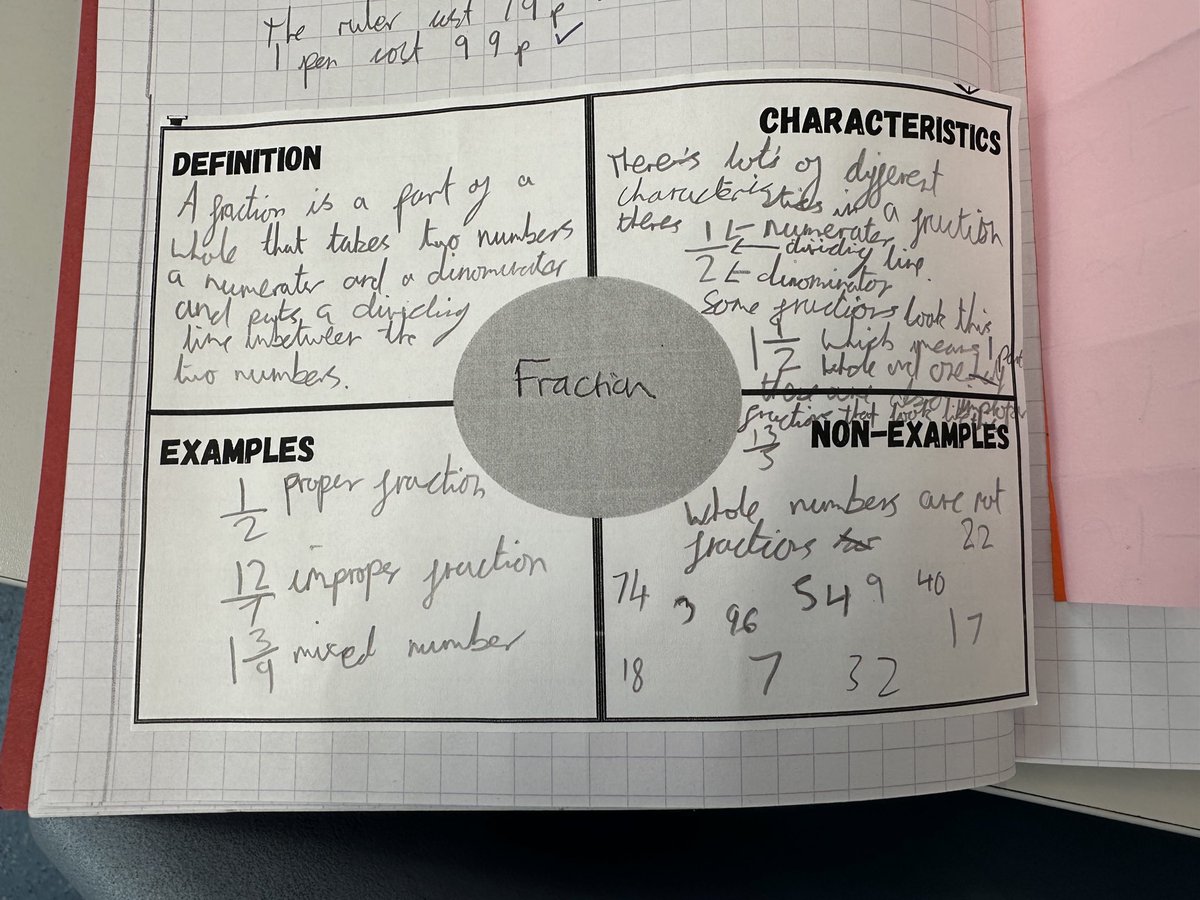 The ruler cost 79p
1 pen cost 99p ✓
DEFINITION
A fraction is a part of a
whole that takes two numbers
a numerater and a dinomerater
and puts a dividing
line inbetween the
two numbers.
CHARACTERISTICS
There's lots of different
characteristics in a fraction
theres
1 ← numerater
← dividig line.
2 ← dinominator
Some fractions look this
1 1/2 which means 1
whole and one part
these are also improper
fractions that look like
13/3
Fraction
EXAMPLES
1/2 proper fraction
12/7 improper fraction
1 3/9 mixed number
NON-EXAMPLES
Whole numbers are not
fractions
22
74 3 96 54 9 40
17
18 7 32